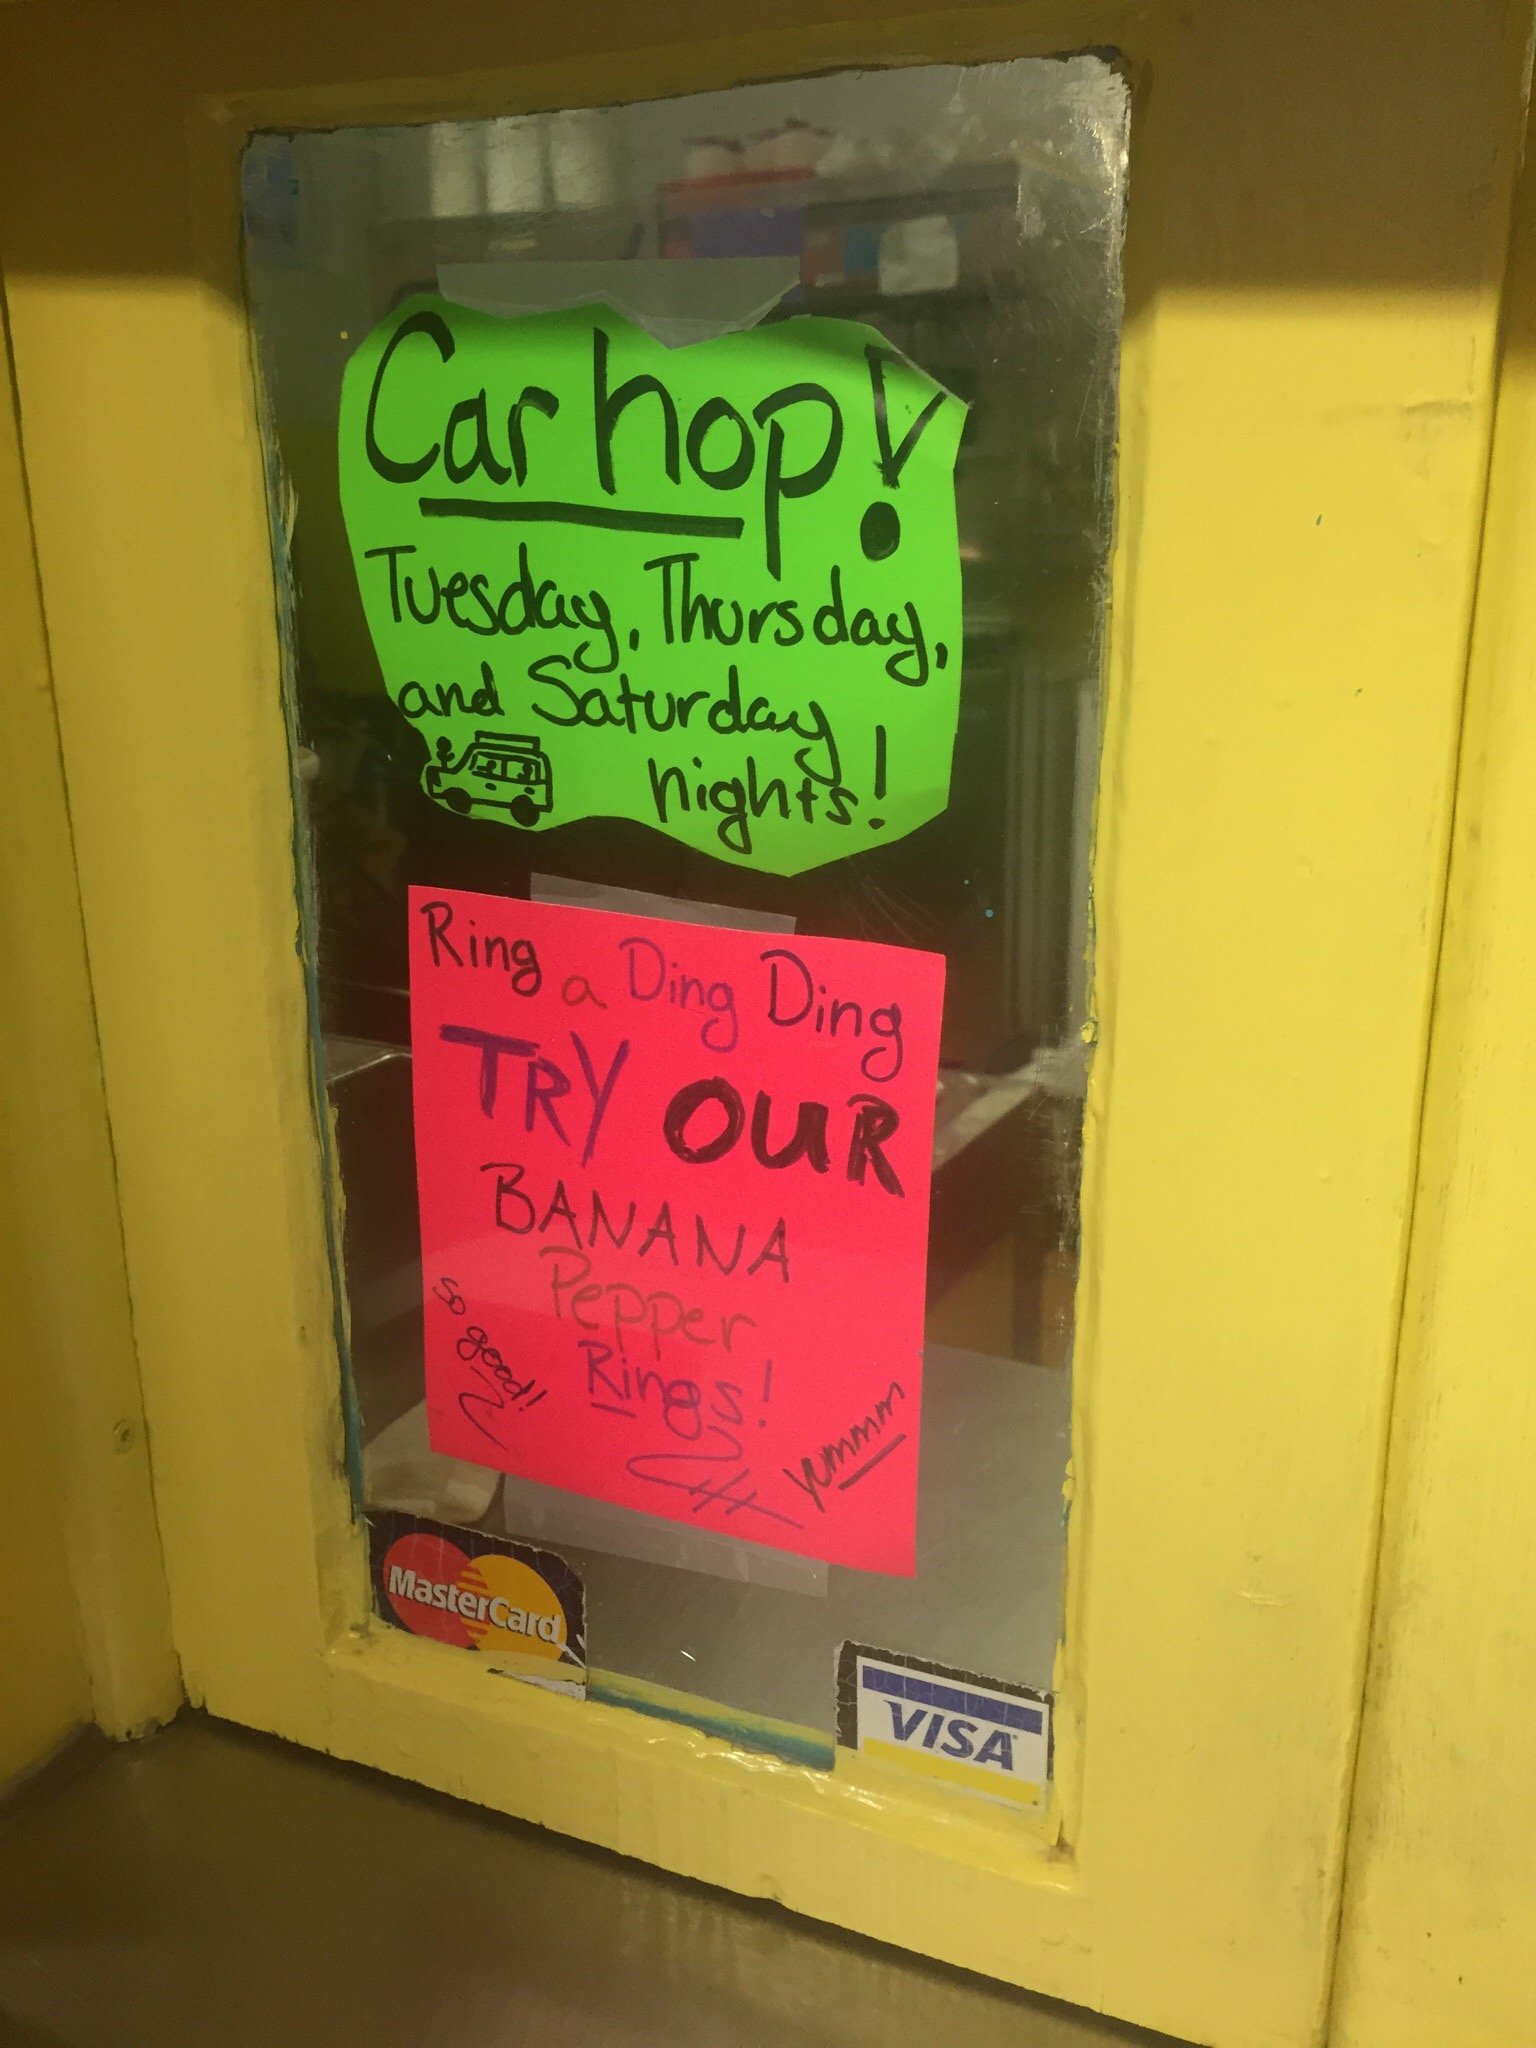 Car hop!
Tuesday, Thursday,
and Saturday
nights!
Ring a Ding Ding
TRY OUR
BANANA
Pepper
Rings!
so good!
yummm
MasterCard
VISA